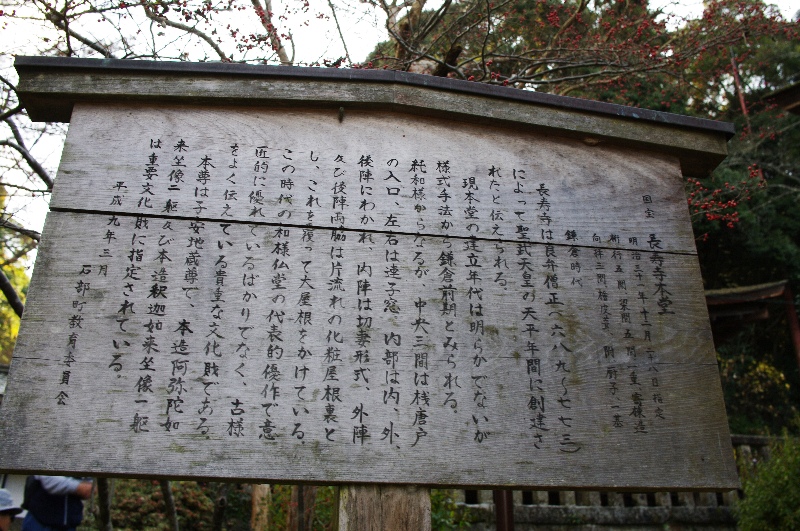 国宝 長寿寺本堂
明治三十年十二月二十八日指定
桁行五間 梁間五間 一重 寄棟造
向拝三間 檜皮葺 附 厨子 一基
鎌倉時代
長寿寺は良弁僧正(六八九〜七七三)
によって聖武天皇の天平年間に創建さ
れたと伝えられる。
現本堂の建立年代は明らかでないが
様式手法から鎌倉前期とみられる。
純和様からなるが、中央三間は桟唐戸
の入口、左右は連子窓、内部は内、外、
後陣にわかれ、内陣は切妻形式、外陣
及び後陣両脇は片流れの化粧屋根裏と
し、これを覆って大屋根をかけている。
この時代の和様仏堂の代表的優作で意
匠的に優れているばかりでなく、古様
をよく伝えている貴重な文化財である。
本尊は子安地蔵尊で、本造阿弥陀如
来坐像二躯及び本造釈迦如来坐像一躯
は重要文化財に指定されている。
平成九年三月
石部町教育委員会